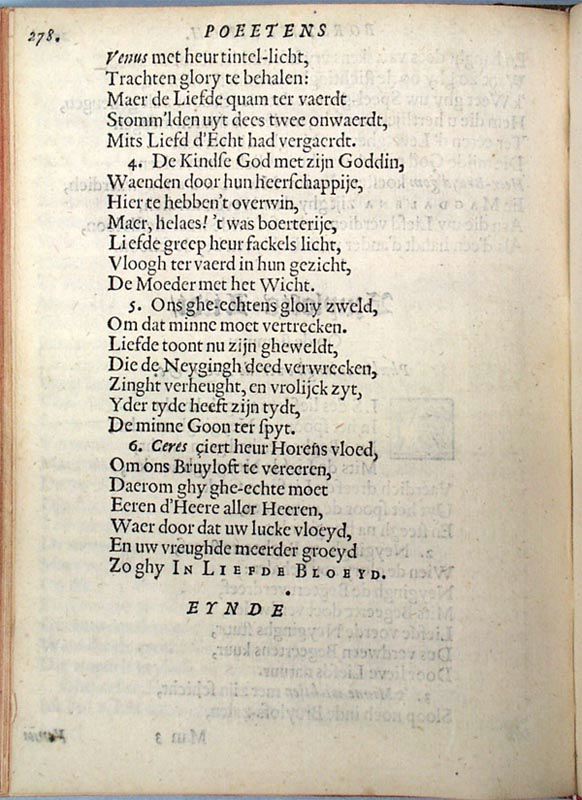 278.
POEETENS
Venus met heur tintel-licht,
Trachten glory te behalen:
Maer de Liefde quam ter vaerdt
Stomm'lden uyt dees twee onwaerdt,
Mits Liefd d'Echt had vergaerdt.
4. De Kindse God met zijn Goddin,
Waenden door hun heerschappije,
Hier te hebben't overwin,
Maer, helaes! 't was boerterije,
Liefde greep heur fackels licht,
Vloogh ter vaerd in hun gezicht,
De Moeder met het Wicht.
5. Ons ghe-echtens glory zweld,
Om dat minne moet vertrecken.
Liefde toont nu zijn gheweldt,
Die de Neygingh deed verwrecken,
Zinght verheught, en vrolijck zyt,
Yder tyde heeft zijn tydt,
De minne Goon ter spyt.
6. Ceres çiert heur Horens vloed,
Om ons Bruyloft te vereeren,
Daerom ghy ghe-echte moet
Eeren d'Heere aller Heeren,
Waer door dat uw lucke vloeyd,
En uw vreughde meerder groeyd
Zo ghy IN LIEFDE BLOEYD.
EYNDE